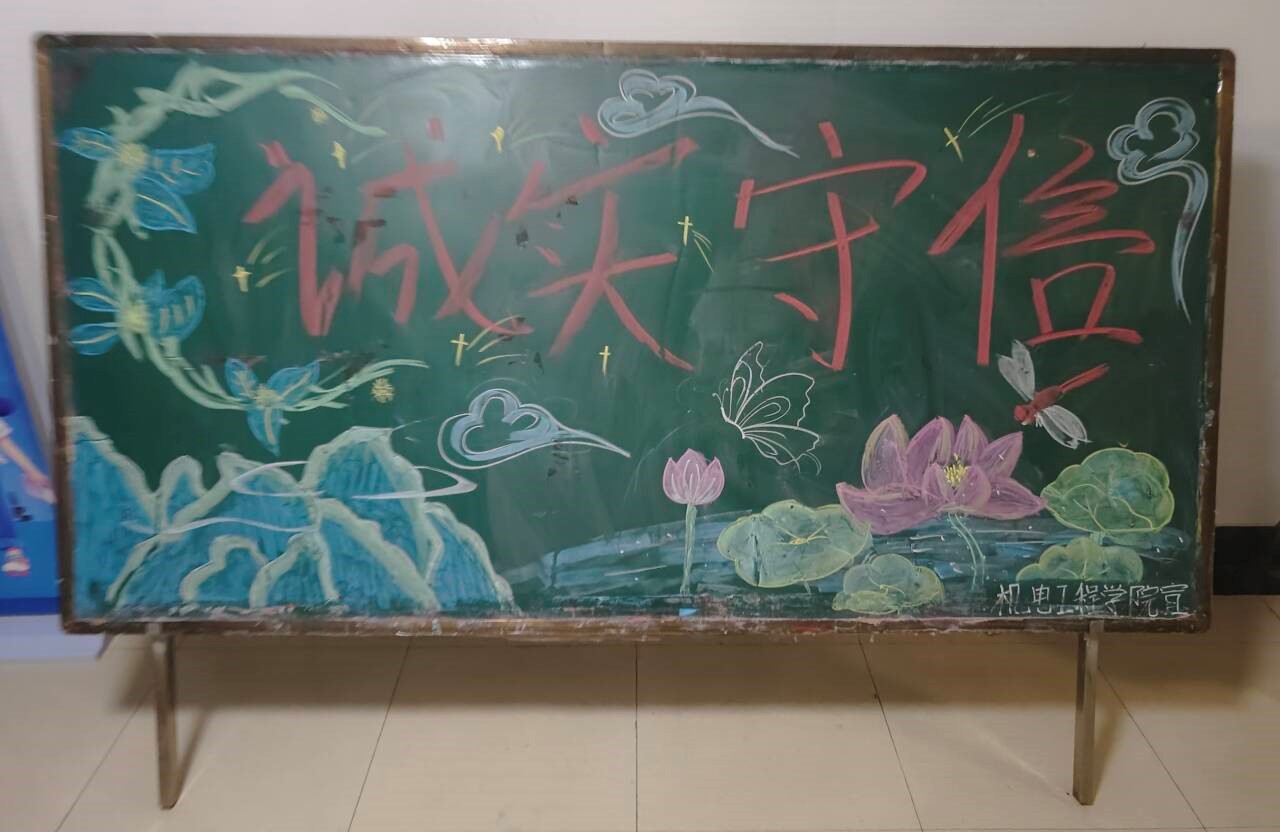 诚实守信
机电工程学院宣